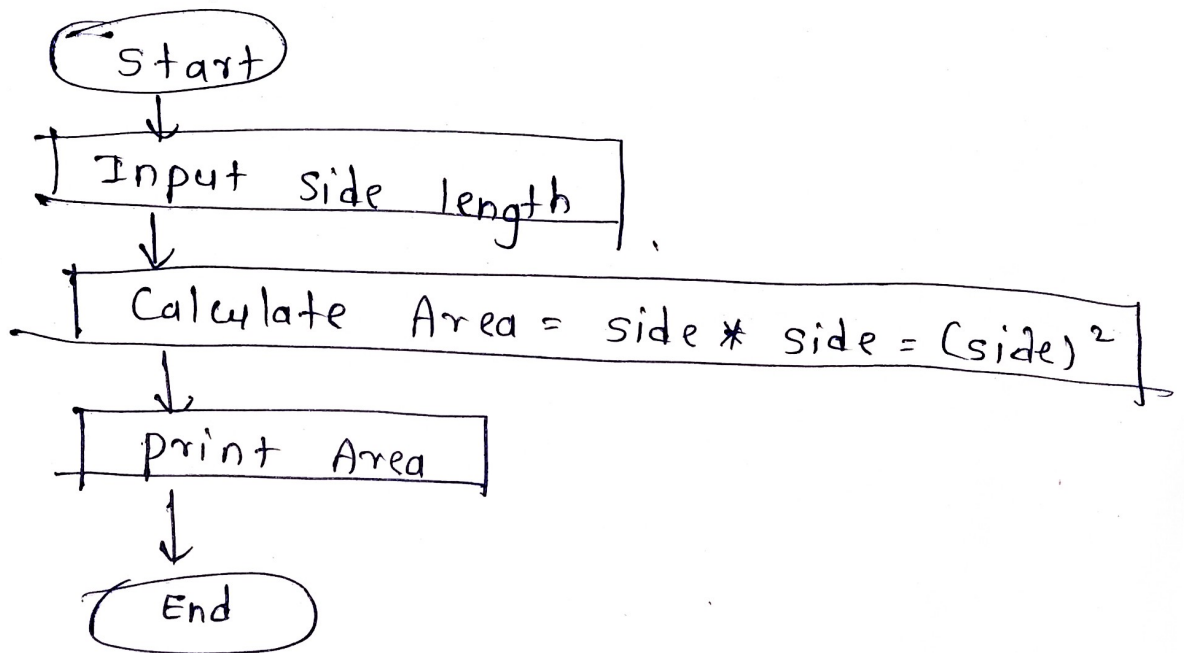 Start
Input side length
Calculate Area = side * side = (side)²
print Area
End